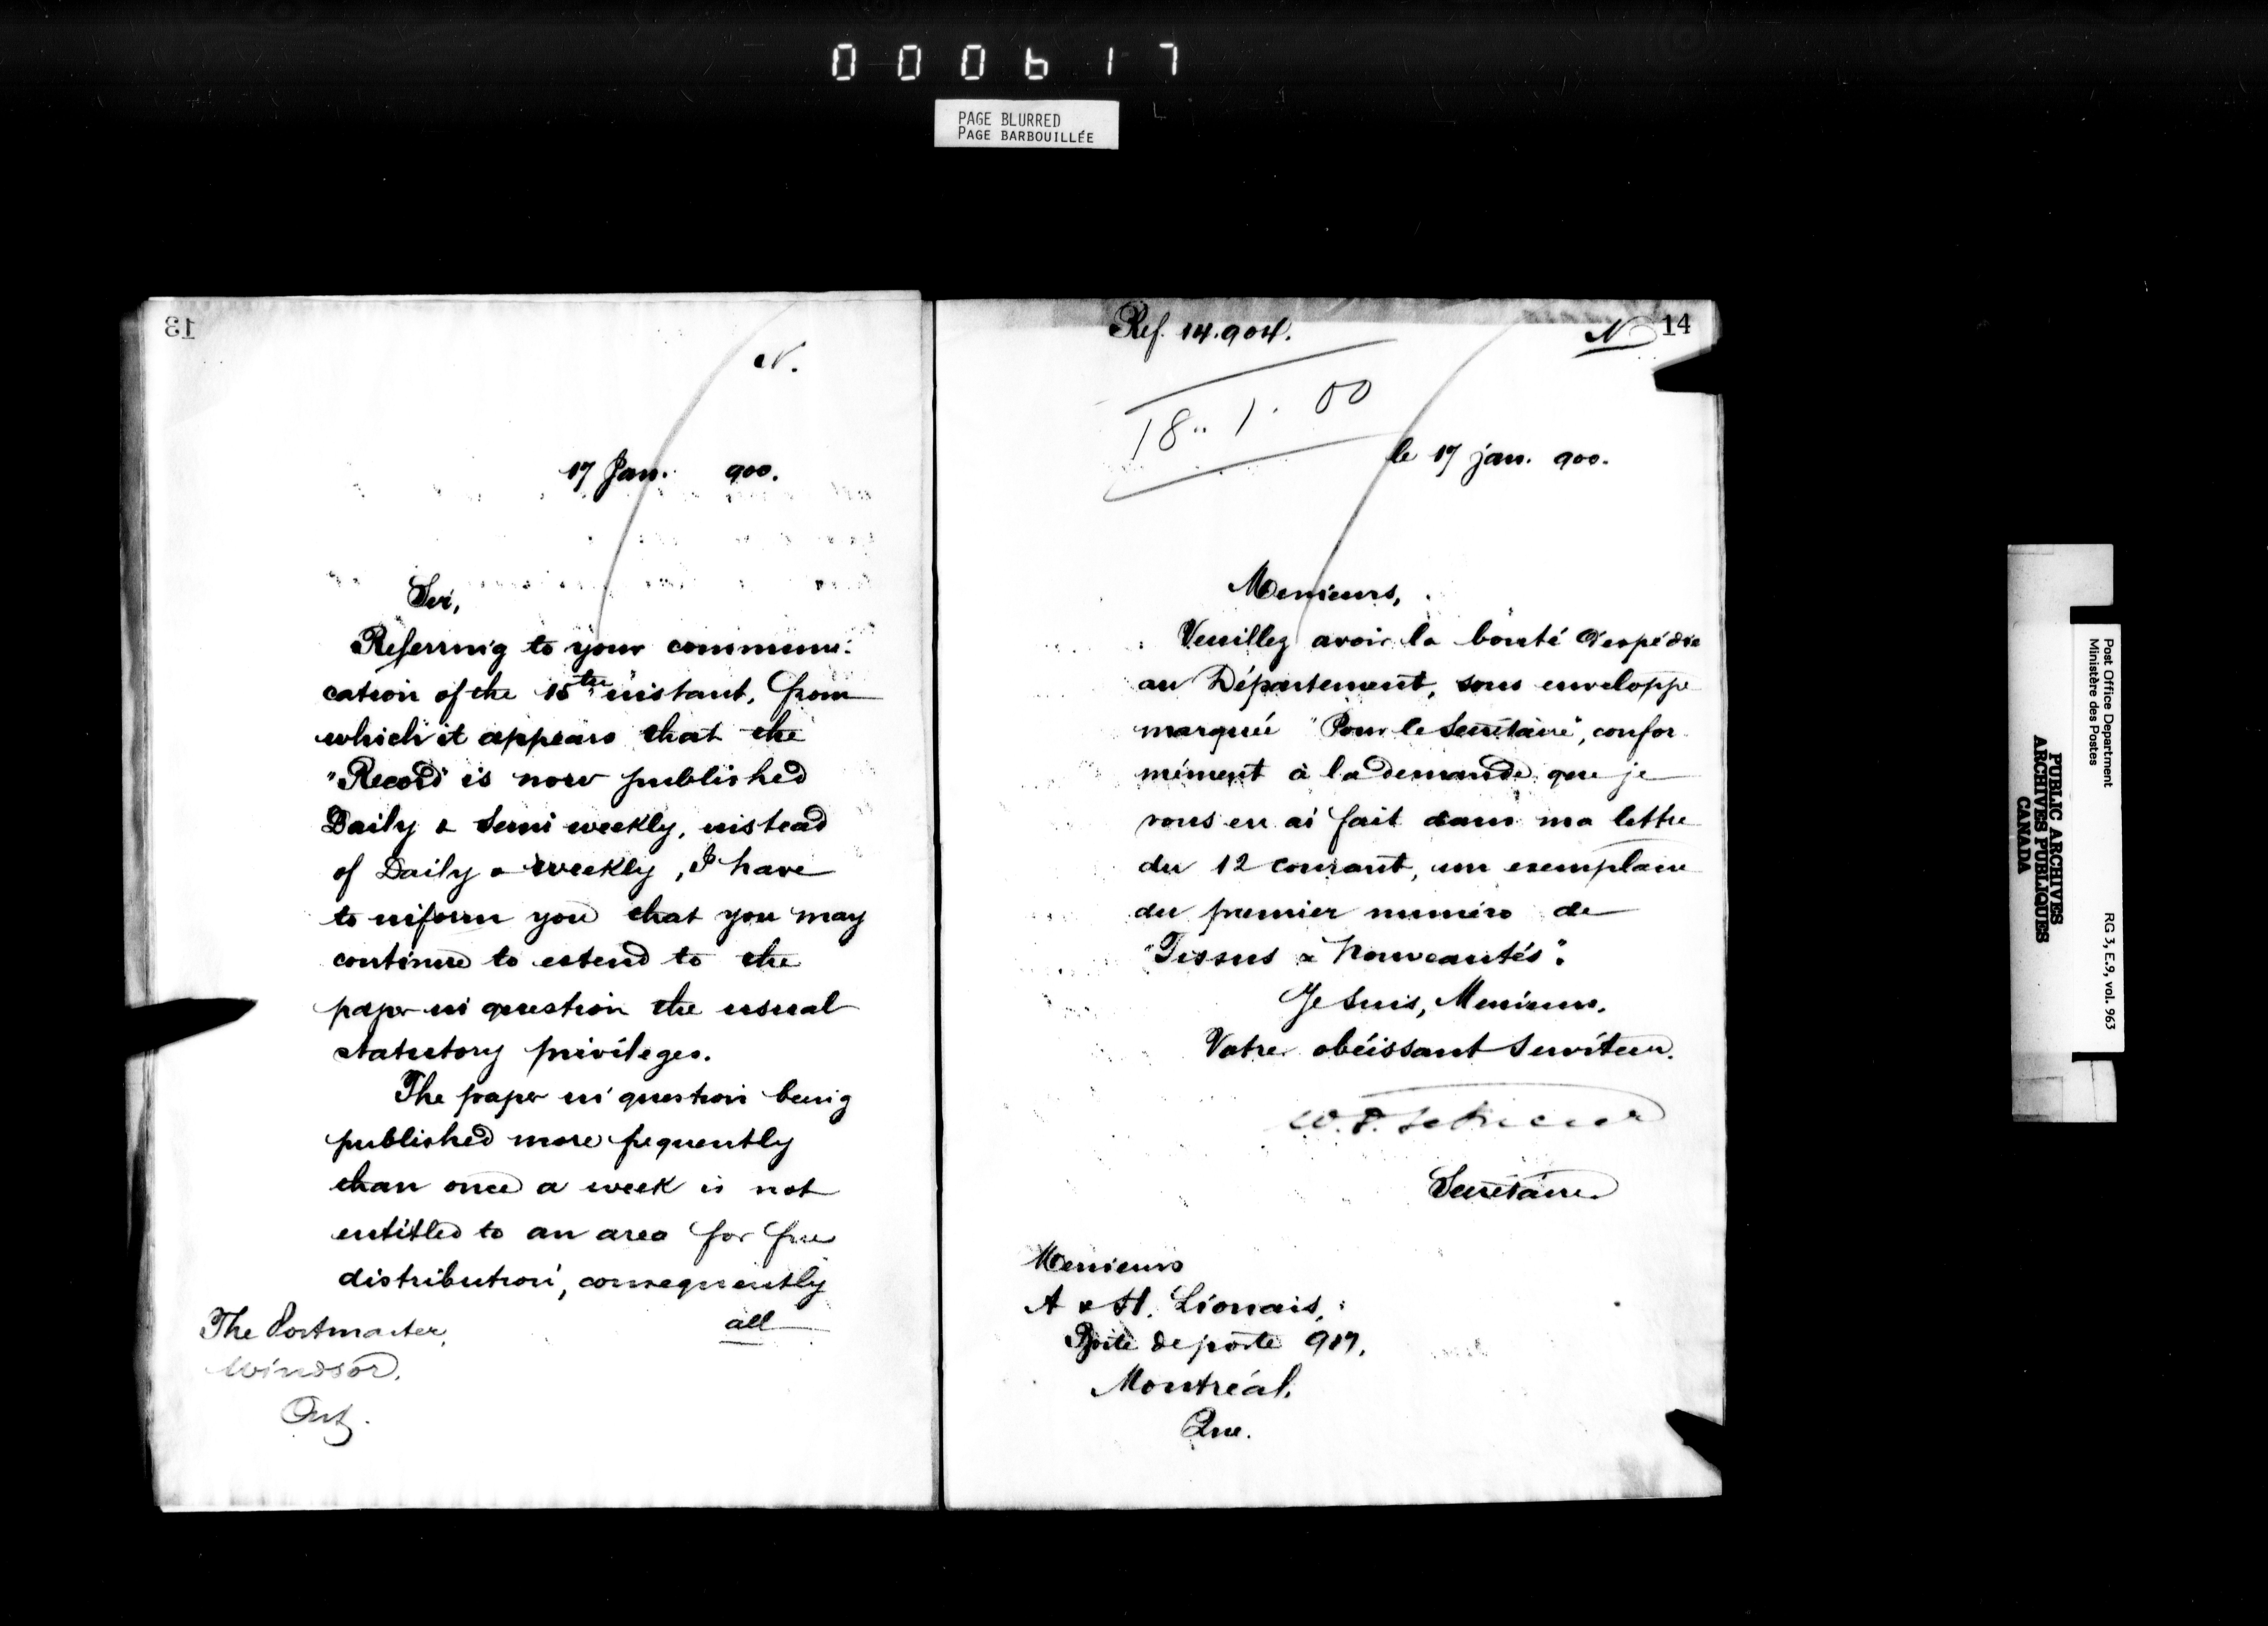 000617
PAGE BLURRED
PAGE BARBOUILLÉE
13
N.
17 Jan. 900.
Sir,
Referring to your communi-
cation of the 15th instant, from
which it appears that the
"Record" is now published
Daily & Semi weekly, instead
of Daily & weekly, I have
to inform you that you may
continue to extend to the
paper in question the usual
statutory privileges.
The paper in question being
published more frequently
than once a week is not
entitled to an area for free
distribution, consequently
all
The Postmaster,
Windsor,
Ont.
Ref. 14.904.
N
14
18.. 1. 00
le 17 jan. 900.
Messieurs,
Veuillez avoir la bonté d'expédier
au Département, sous enveloppe
marquée "Pour le Secrétaire", confor-
mément à la demande que je
vous en ai fait dans ma lettre
du 12 courant, un exemplaire
du premier numéro de
"Tissus & Nouveautés".
Je suis, Messieurs,
Votre obéissant Serviteur.
Secrétaire
Messieurs
A & H. Lionais,
Boite de poste 917,
Montréal,
Que.
Post Office Department
Ministère des Postes
RG 3, E.9, vol. 963
PUBLIC ARCHIVES
ARCHIVES PUBLIQUES
CANADA